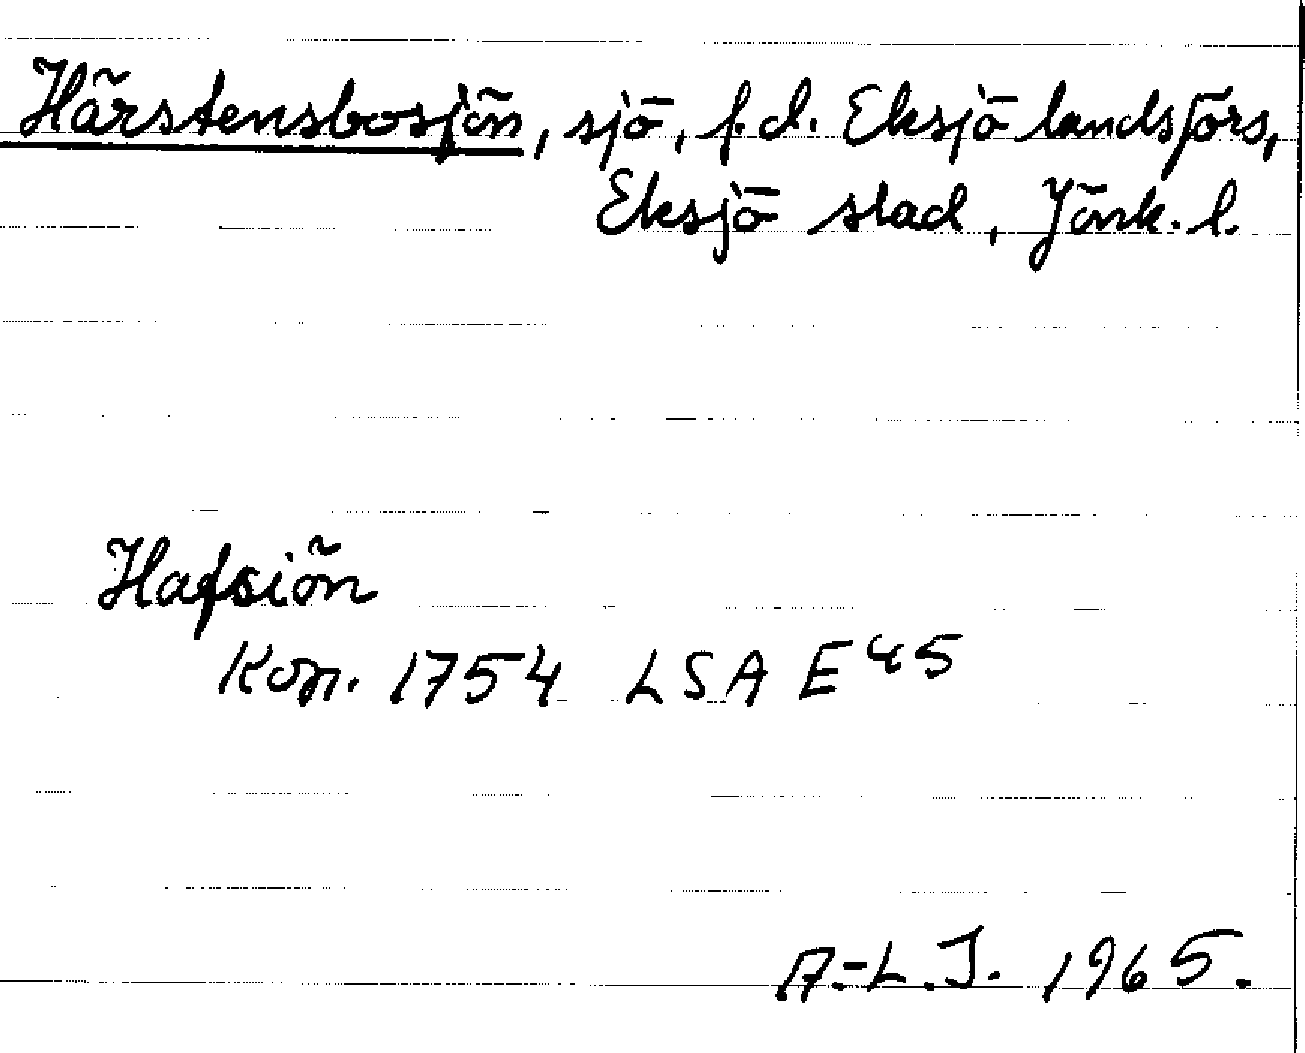 Härstensbosjön, sjö, f.d. Eksjö landsförs,
Eksjö stad, Jönk. l.
Hafsiön
Kon. 1754 LSA E 45
A.-L.J. 1965.